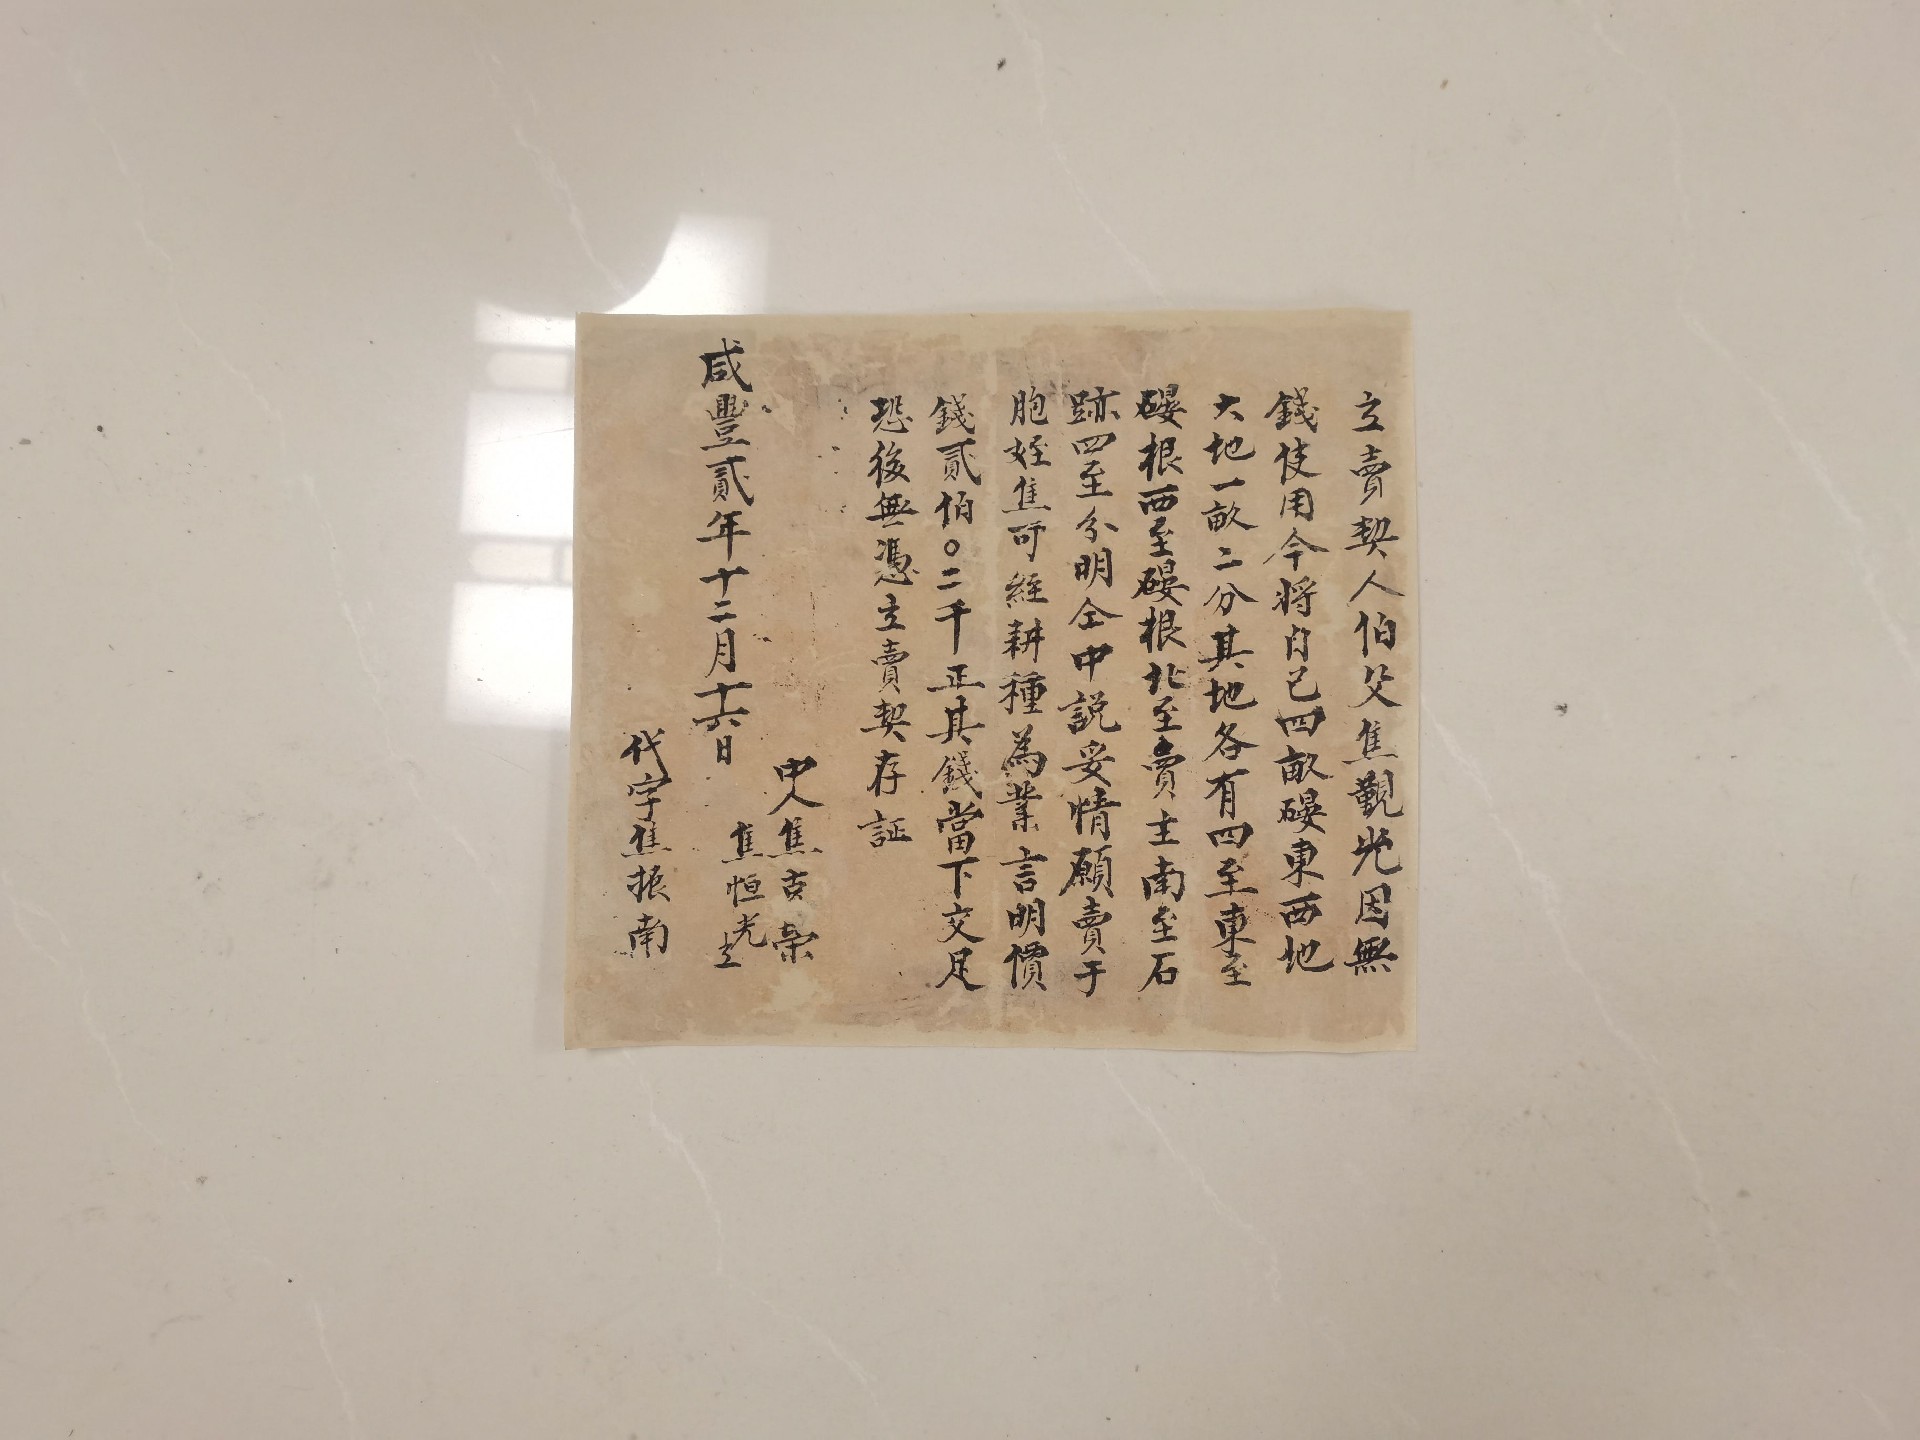 立賣契人伯父焦觀光因無
錢使用今將自己四畝磘東西地
大地一畝二分其地各有四至東至
磘根西至磘根北至賣主南至石
跡四至分明仝中説妥情願賣于
胞姪焦可經耕種為業言明價
錢貳伯〇二千正其錢當下交足
恐後無憑立賣契存証
中人焦古榮
焦恒光立
咸豐貳年十二月十六日
代字焦振南